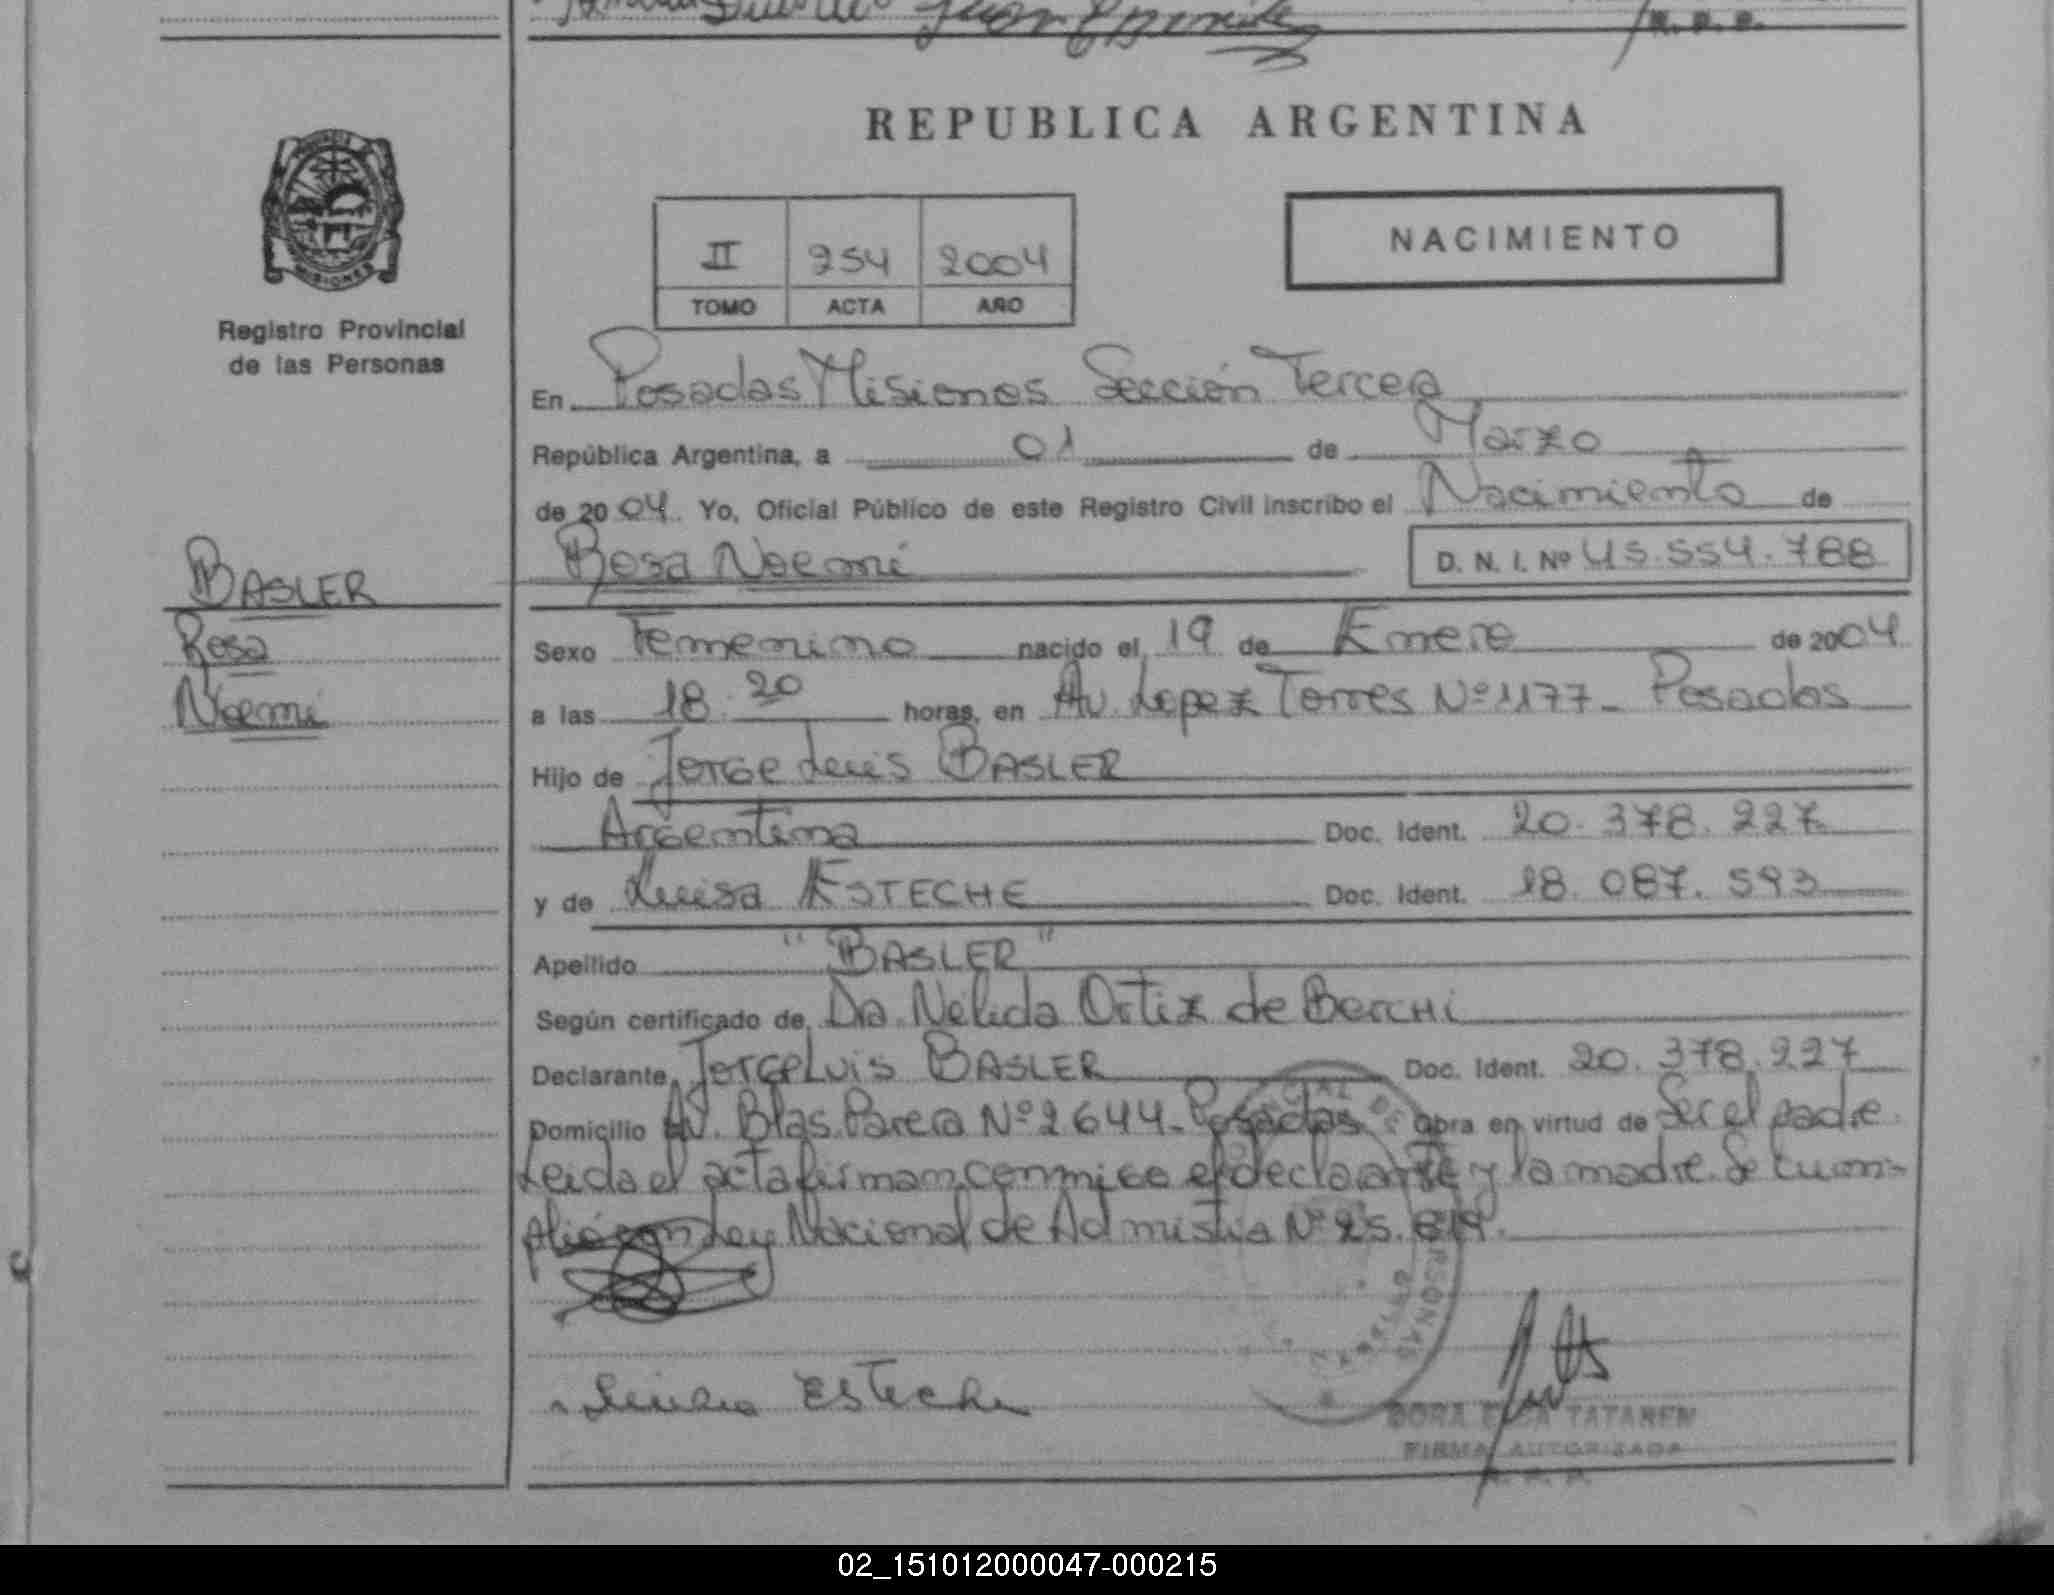 REPUBLICA ARGENTINA
NACIMIENTO
II 254 2004
TOMO ACTA AÑO
MISIONES
Registro Provincial
de las Personas
En Posadas Misiones Sección Tercera
República Argentina, a 01 de Marzo
de 2004. Yo, Oficial Público de este Registro Civil inscribo el Nacimiento de
Rosa Noemí D. N. I. Nº 45.554.788
BASLER
Rosa
Noemí
Sexo Femenino nacido el 19 de Enero de 2004
a las 18.20 horas, en Av. Lopez Torres Nº 1177 - Posadas
Hijo de Jorge Luis BASLER
Argentina Doc. Ident. 20.378.227
y de Luisa ESTECHE Doc. Ident. 18.087.593
Apellido "BASLER"
Según certificado de Dra. Nélida Ortiz de Berchi
Declarante Jorge Luis BASLER Doc. Ident. 20.378.227
Domicilio Av. Blas Parera Nº 2644 - Posadas Obra en virtud de Ser el padre.
Leida el acta firman conmigo el declarante y la madre. Se cum-
plió con Ley Nacional de Admistia Nº 25.819.
Luisa Esteche
DORA TATAREN
FIRMA AUTORIZADA
R. P. P.
02_151012000047-000215